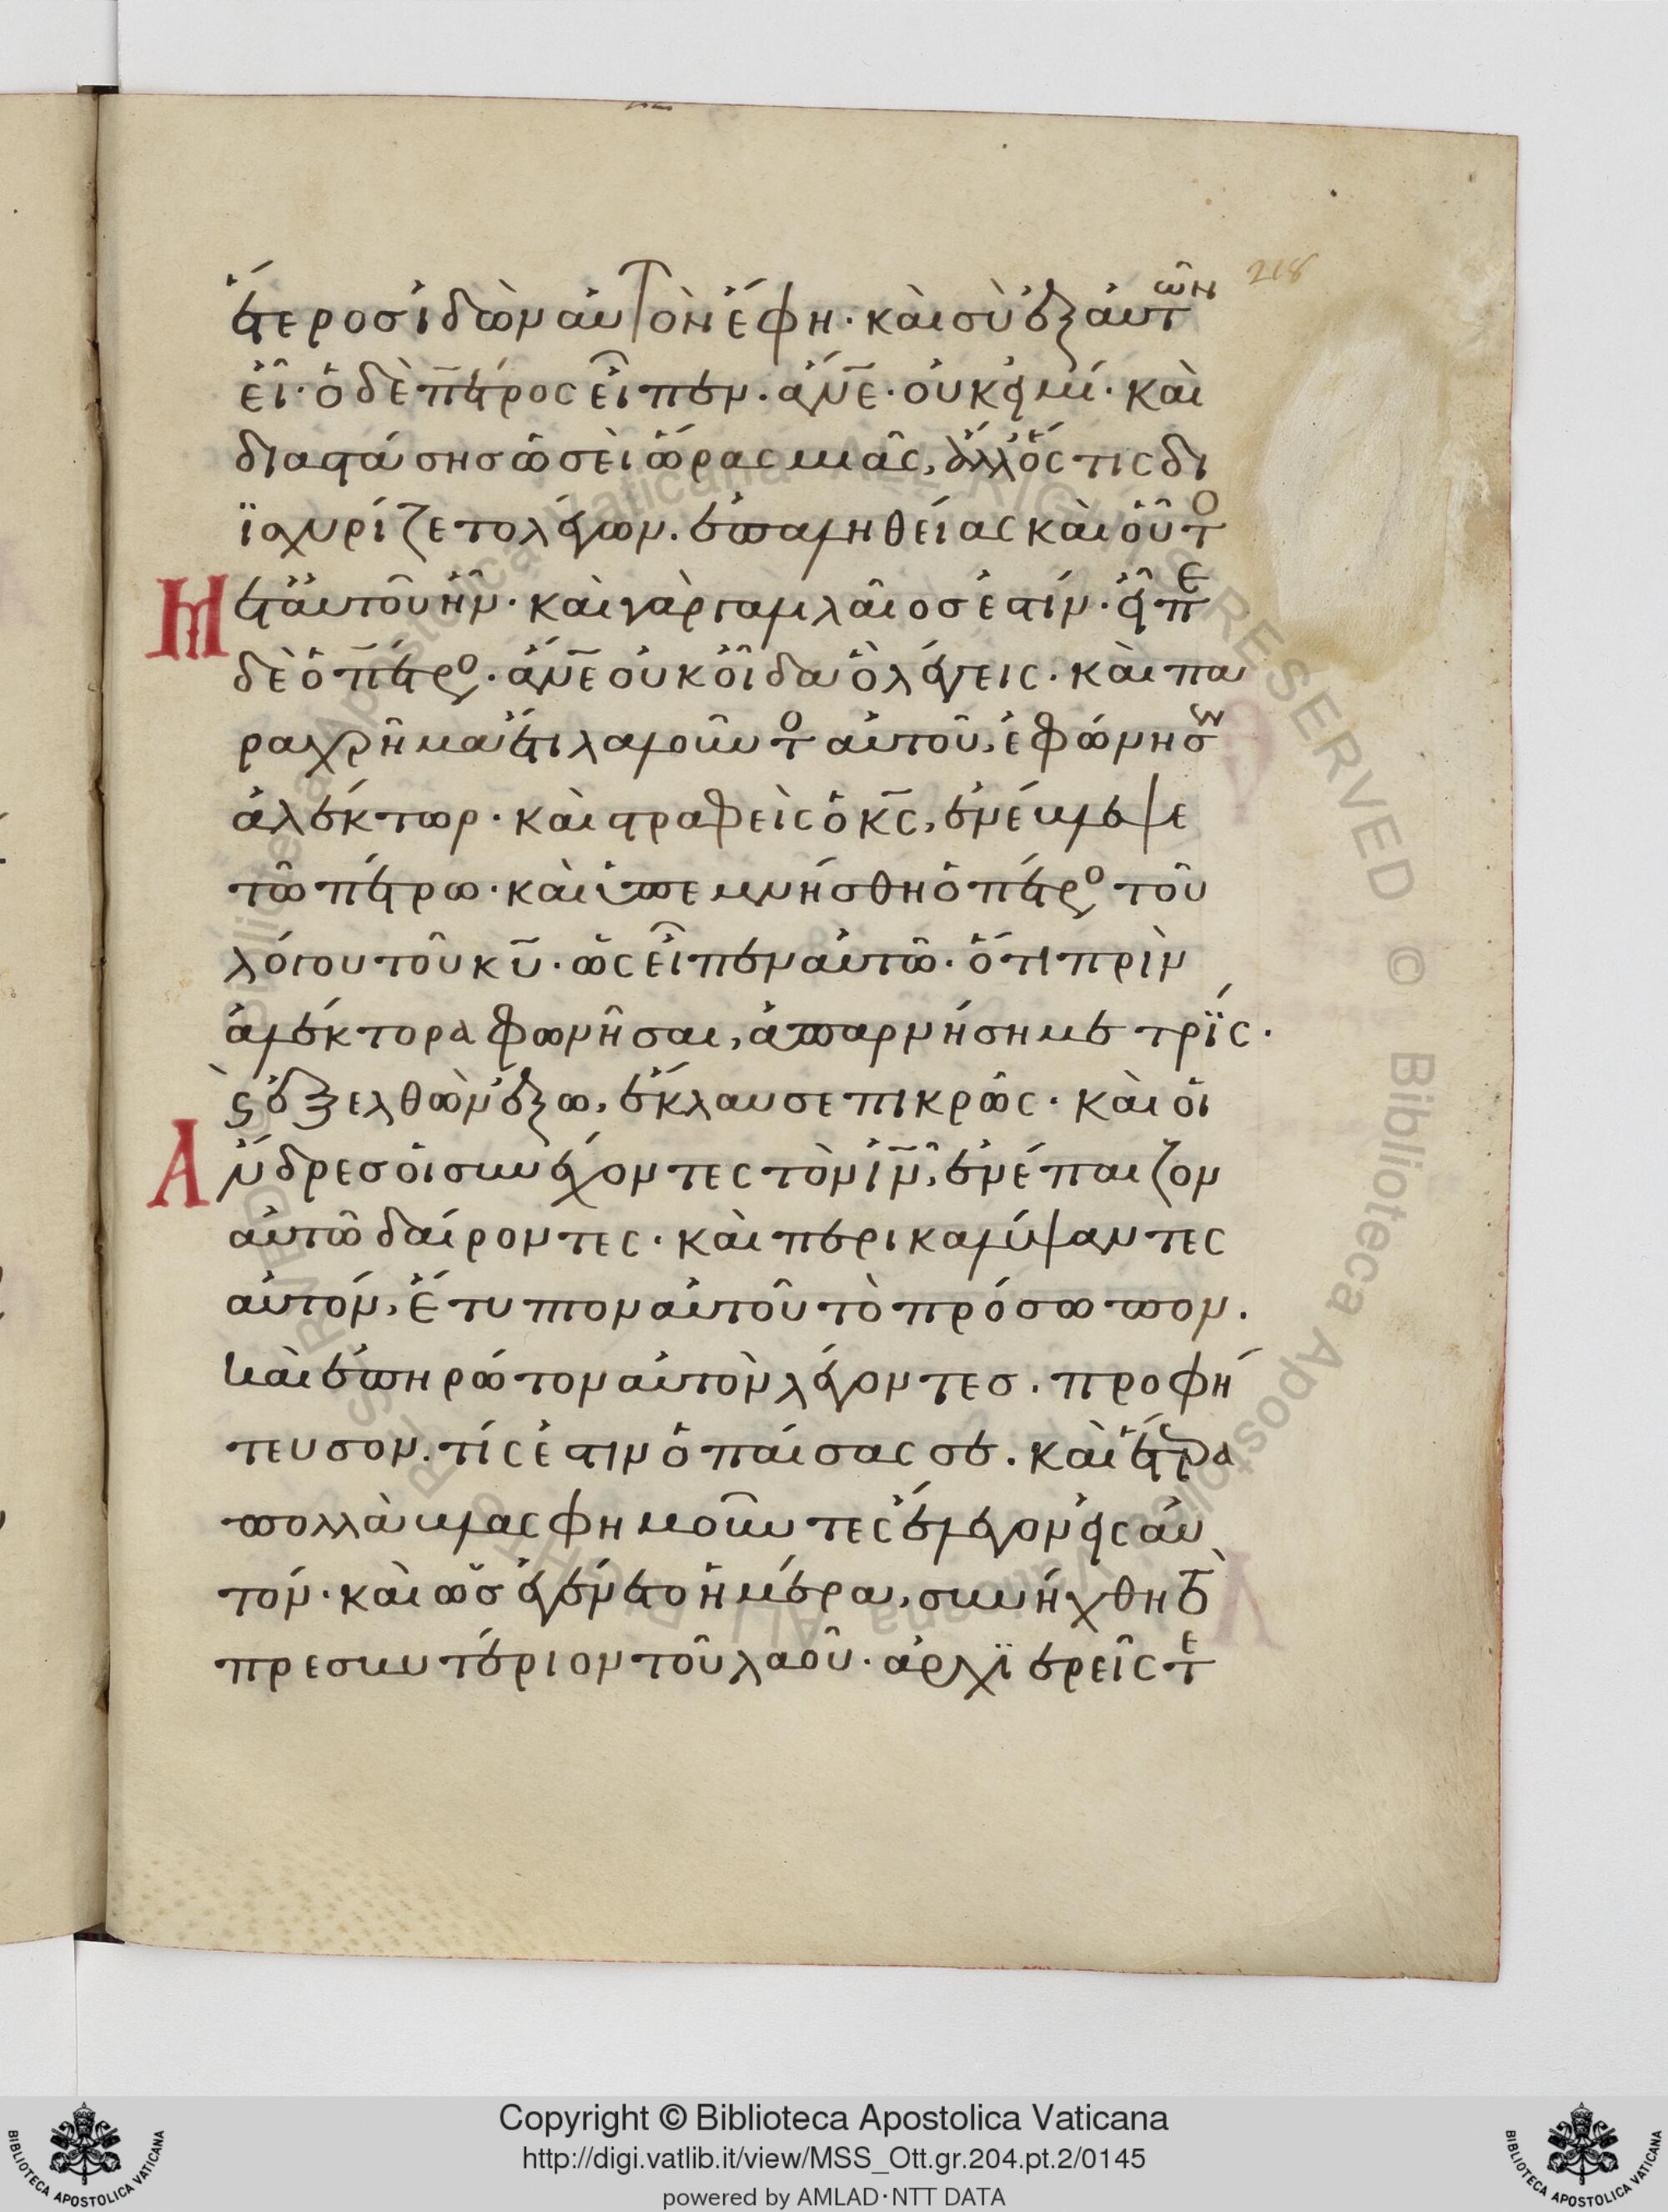 218
ἕτεροσ ἰδὼν αὐτὸν ἔφη· καὶ σὺ ἐξ αὐτῶν
εἶ· ὁ δὲ πέτρος εἶπεν. ἄνε· οὐκ εἰμί· καὶ
διαστάσησ ὡσεὶ ὥρας μιᾶς, ἄλλός τις δι
ϊσχυρίζετο λέγων. ἐπ αληθείας καὶ οὗτο
Μετ αὐτοῦ ἦν· καὶ γὰρ γαλιλαῖοσ ἐστίν· εἶπε
δὲ ὁ πέτρος· ἄνε οὐκ οἶδα ὃ λέγεις· καὶ πα
ραχρῆμα ἔτι λαλοῦντο αὐτοῦ, ἐφώνησεν
ἀλέκτωρ· καὶ στραφεὶς ὁ κς, ἐνέβλεψε
τῶ πέτρω· καὶ ὑπεμνήσθη ὁ πέτρος τοῦ
λόγου τοῦ κυ· ὡς εἶπεν αὐτῶ· ὅτι πρὶν
ἀλέκτορα φωνῆσαι, ἀπαρνήση με τρϊς·
ϛ ἐξελθὼν ἔξω, ἔκλαυσε πικρῶς· καὶ οἱ
Ἄνδρεσ οἱ συνέχοντες τὸν ιν, ἐνέπαιζον
αὐτῶ δαίροντες· καὶ περικαλύψαντες
αὐτόν, ἔτυπτον αὐτοῦ τὸ πρόσωπον.
καὶ ἐπηρώτον αὐτὸν λέγοντεσ. προφή
τευσον. τίς ἐστιν ὁ παίσας σε. καὶ ἕτερα
πολλὰ βλασφημοῦντες ἔλεγον εἰς αὐ
τόν· καὶ ὡσ ἐγένετο ἡμέρα, συνήχθη τὸ
πρεσβυτέριον τοῦ λαοῦ· ἀρχϊερεῖς τε
Copyright © Biblioteca Apostolica Vaticana
http://digi.vatlib.it/view/MSS_Ott.gr.204.pt.2/0145
powered by AMLAD·NTT DATA
BIBLIOTECA APOSTOLICA VATICANA
BIBLIOTECA APOSTOLICA VATICANA